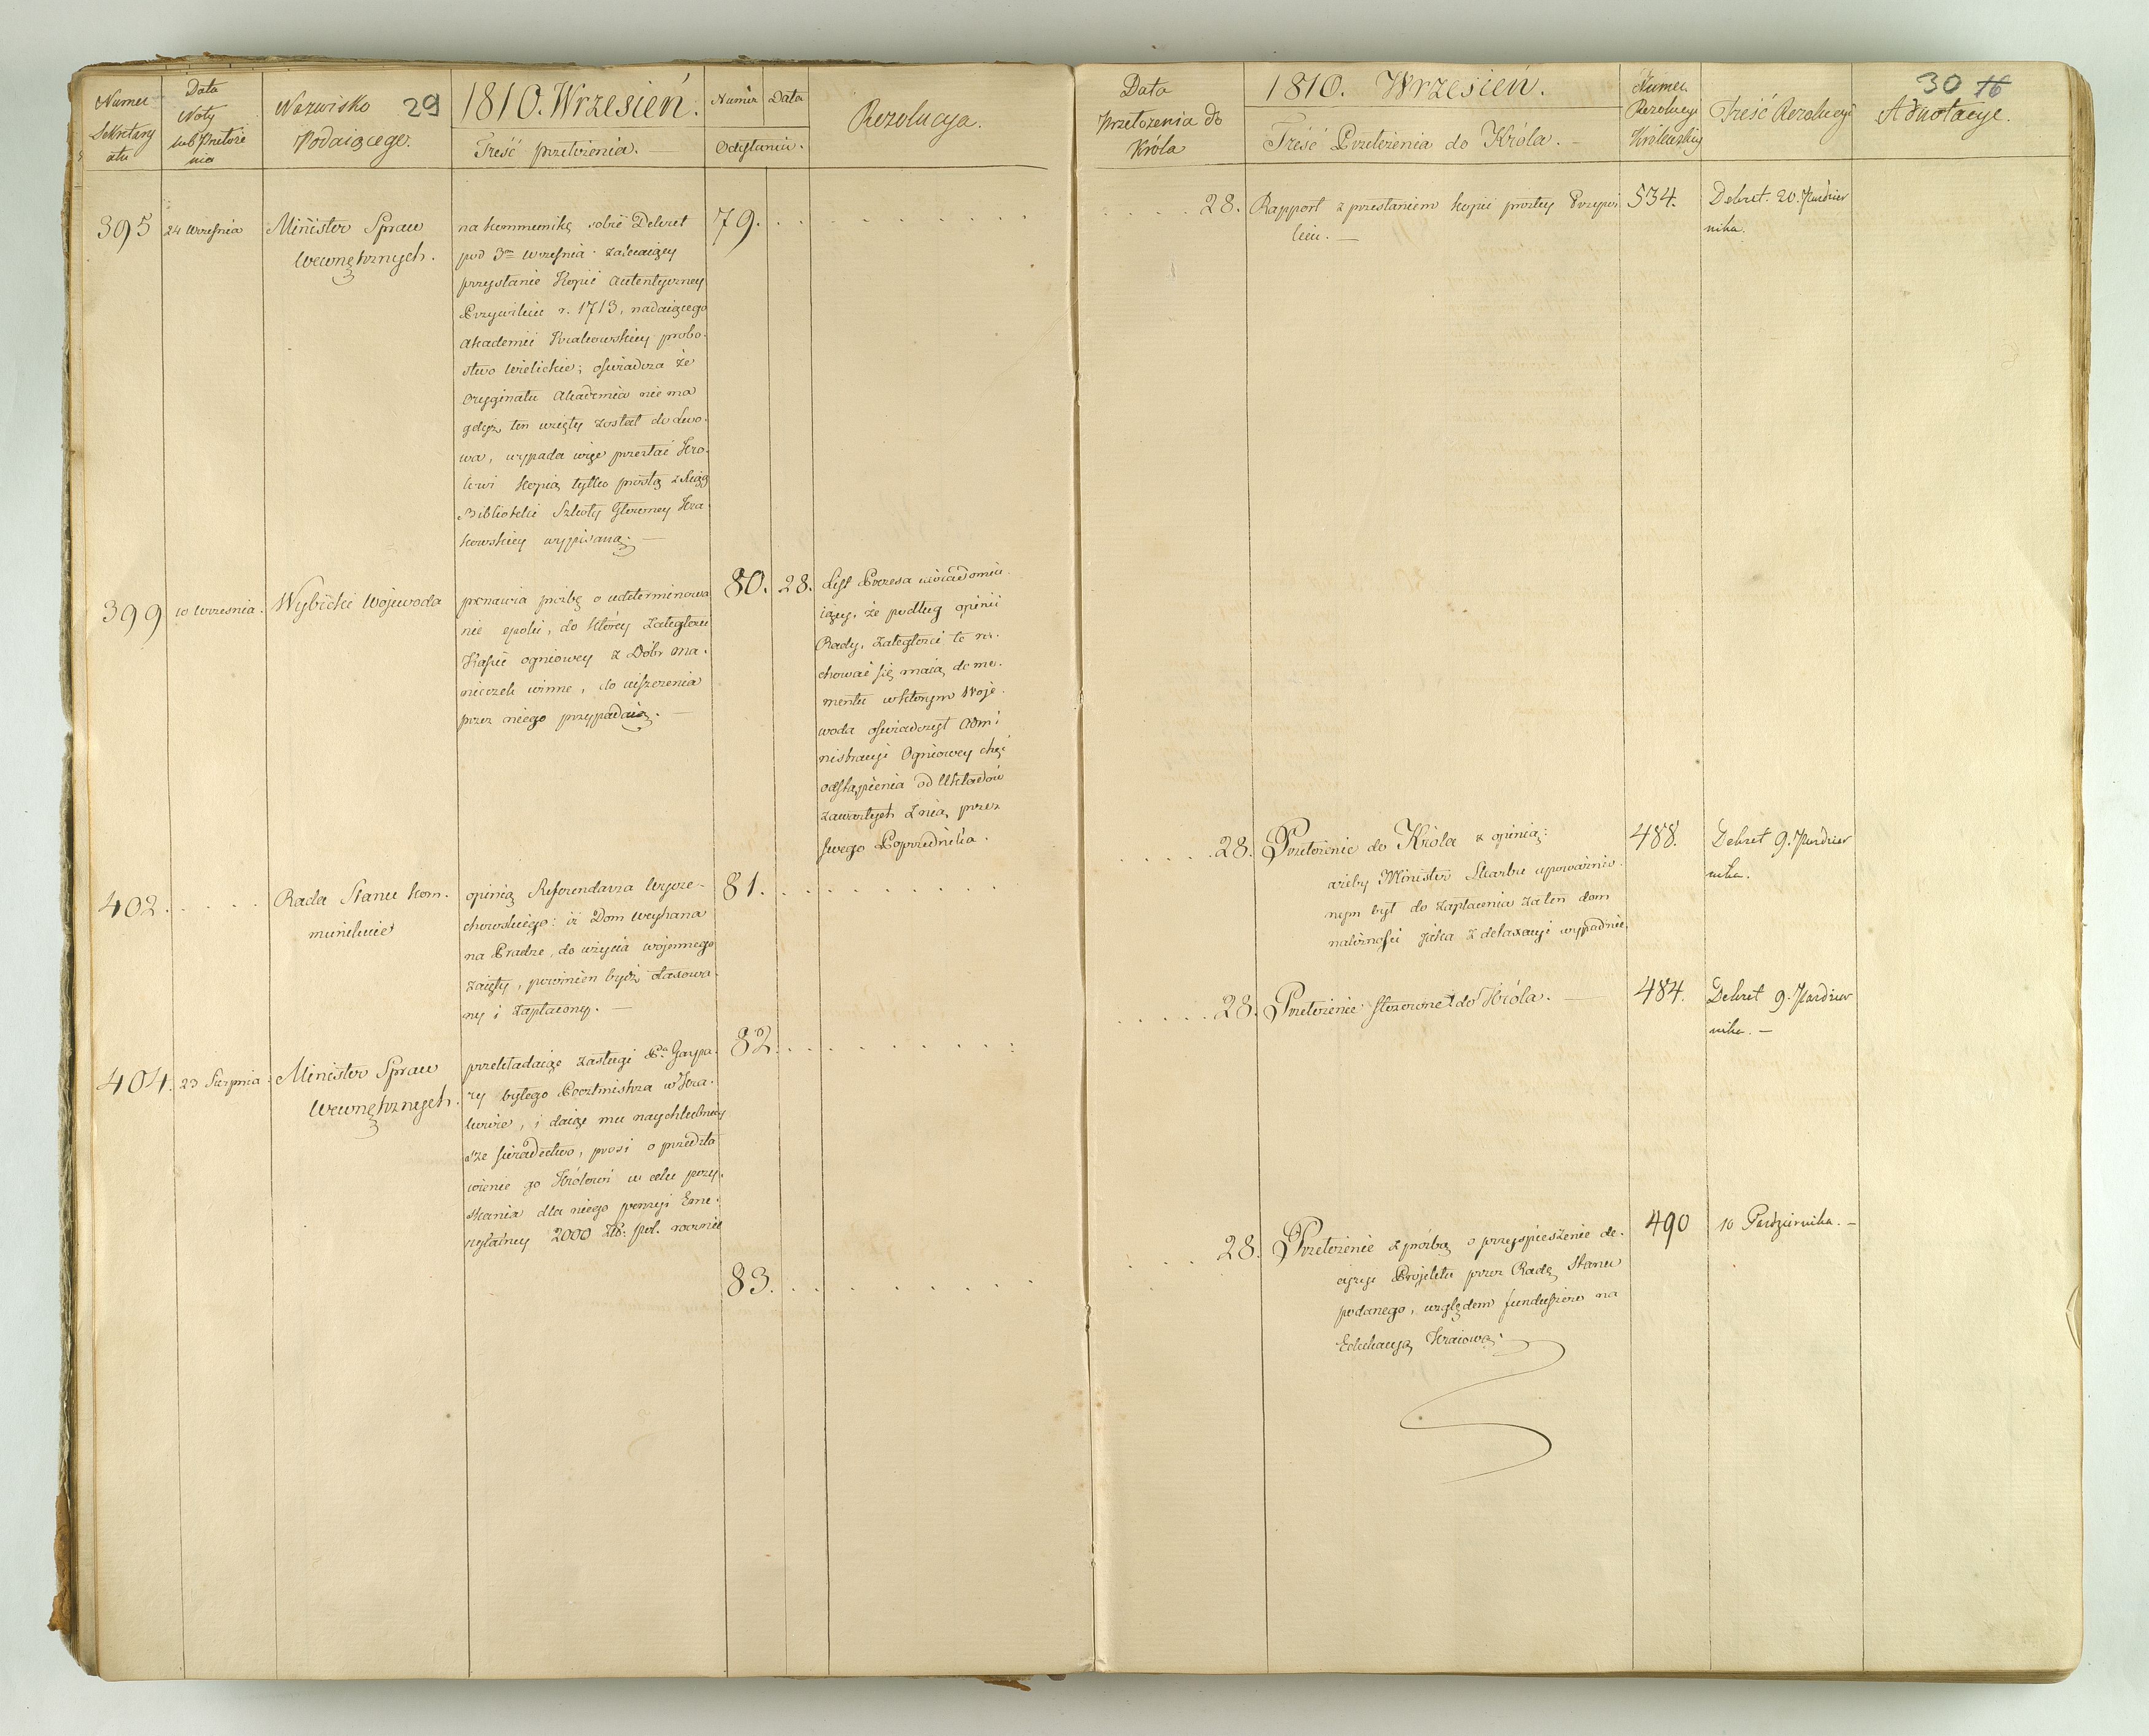 Numer
Sekretary
atu
Data
Noty
lub Przełoże
nia
Nazwisko
Podaiącego.
29
1810. Wrzesień.
Treść przełożenia. —
Numer
Data
Odesłania.
Rezolucya.
395
24 Września
Minister Spraw
Wewnętrznych.
na kommunikę sobie Dekret
pod 3m Września zalecaiący
przysłanie Kopii autentyczney
Przywileiu r. 1713, nadaiącego
Akademii Krakowskiey probo-
stwo Wielickie; oświadcza że
Oryginału Akademia nie ma
gdyż ten wzięty został do Lwo-
wa, wypada więc przesłać Kró-
lowi Kopią tylko prostą z Xiąg
Biblioteki Szkoły Główney Kra
kowskiey wypisaną. —
79. . .
399
10 Września.
Wybicki Wojewoda
ponawia prozbę o udeterminowa
nie epoki, do którey zaległości
Kassie ogniowey z Dóbr Ma-
nieczek winne, do uiszczenia
przez niego przypadaią. —
80.
28.
List Prezesa uwiadomia
iący, że podług opinii
Rady, zaległości te ra-
chować się maią do mo-
mentu w którym Woje-
woda oświadczył Admi
nistracyi Ogniowey chęć
odstąpienia od Układów
zawartych z nią, przez
swego Poprzednika.
402. . . . .
Rada Stanu kom-
munikuie
opinią Referendarza Wycze-
chowskiego: iż Dom Weyhana
na Pradze, do użycia wojennego
zaięty, powinien bydź otaxowa-
ny i zapłacony. —
81. . . . . . . . .
404.
23 Sierpnia.
Minister Spraw
Wewnętrznych.
przekładaiąc zasługi Pa Gaspa-
ry byłego Pocztmistrza w Kra-
kowie, i daiąc mu naychlubniey
sze świadectwo, prosi o przedsta
wienie go Królowi w celu pozy-
skania dla niego pensyi Eme-
rytalney 2000 Złł: pol. rocznie
82. . . . . . . . .
83. . . . . . . . .
Data
Przełożenia do
Króla
1810. Wrzesień.
Treść Przełożenia do Króla. —
Numer
Rezolucyi
Królewskiey
Treść Rezolucyi
30 16
Adnotacye.
. . . . 28.
Rapport z przesłaniem kopii prostey Przywi
leiu. —
534.
Dekret. 20. Paździer
nika.
. . . . . 28.
Przełożenie do Króla z opinią:
ażeby Minister Skarbu upoważnio-
nym był do zapłacenia za ten dom
należności jaka z detaxacyi wypadnie.
488.
Dekret 9. Paździer
nika.
. . . . . 28.
Przełożenie stosowne do Króla. —
484.
Dekret 9. Paździer
nika. —
. . . 28.
Przełożenie z prozbą o przyspieszenie de-
cyzyi Projektu przez Radę Stanu
podanego, względem funduszów na
Edukacyą Kraiową.
490
10 Października. —